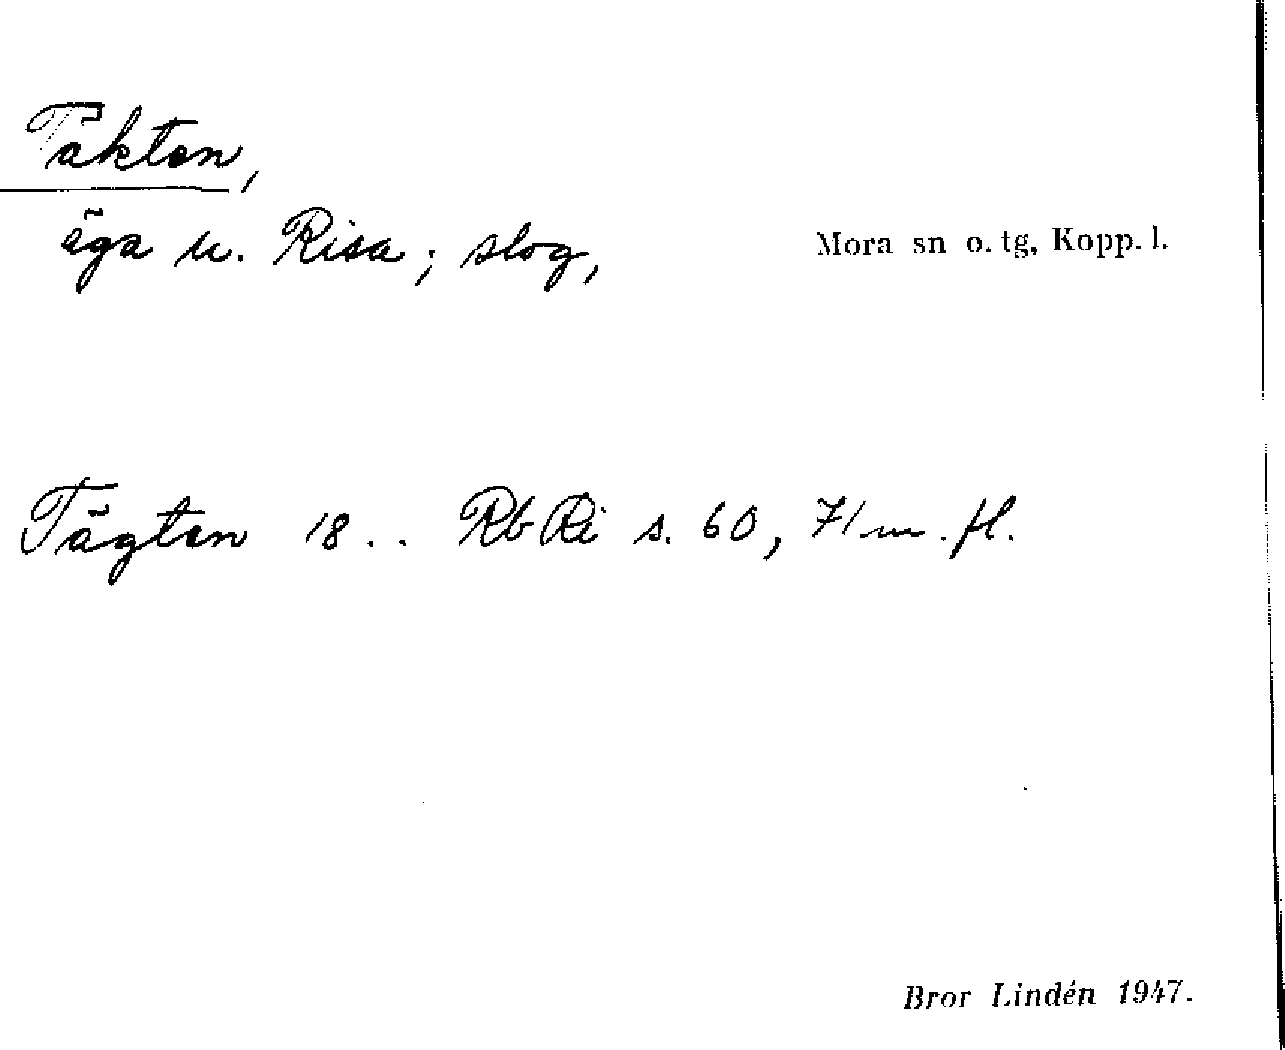 Täkten,
äga u. Risa; slog,
Mora sn o. tg, Kopp. l.
Tägten 18.. RbRi s. 60, 71 m. fl.
Bror Lindén 1947.